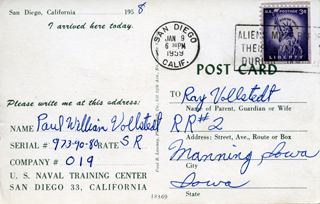 San Diego, California 195 8
I arrived here today.
Please write me at this address:
NAME Paul William Vollstedt
SERIAL # 973-90-80 RATE SR
COMPANY # 019
U. S. NAVAL TRAINING CENTER
SAN DIEGO 33, CALIFORNIA
SAN DIEGO
JAN 9
6 PM
1959
CALIF.
ALIENS MU
THEI
DUR
U.S. POSTAGE 3¢
LIBERTY
POST CARD
TO Ray Vollstedt
Name of Parent, Guardian or Wife
RR#2
Address: Street, Ave., Route or Box
Manning Iowa
City
Iowa
State
18369